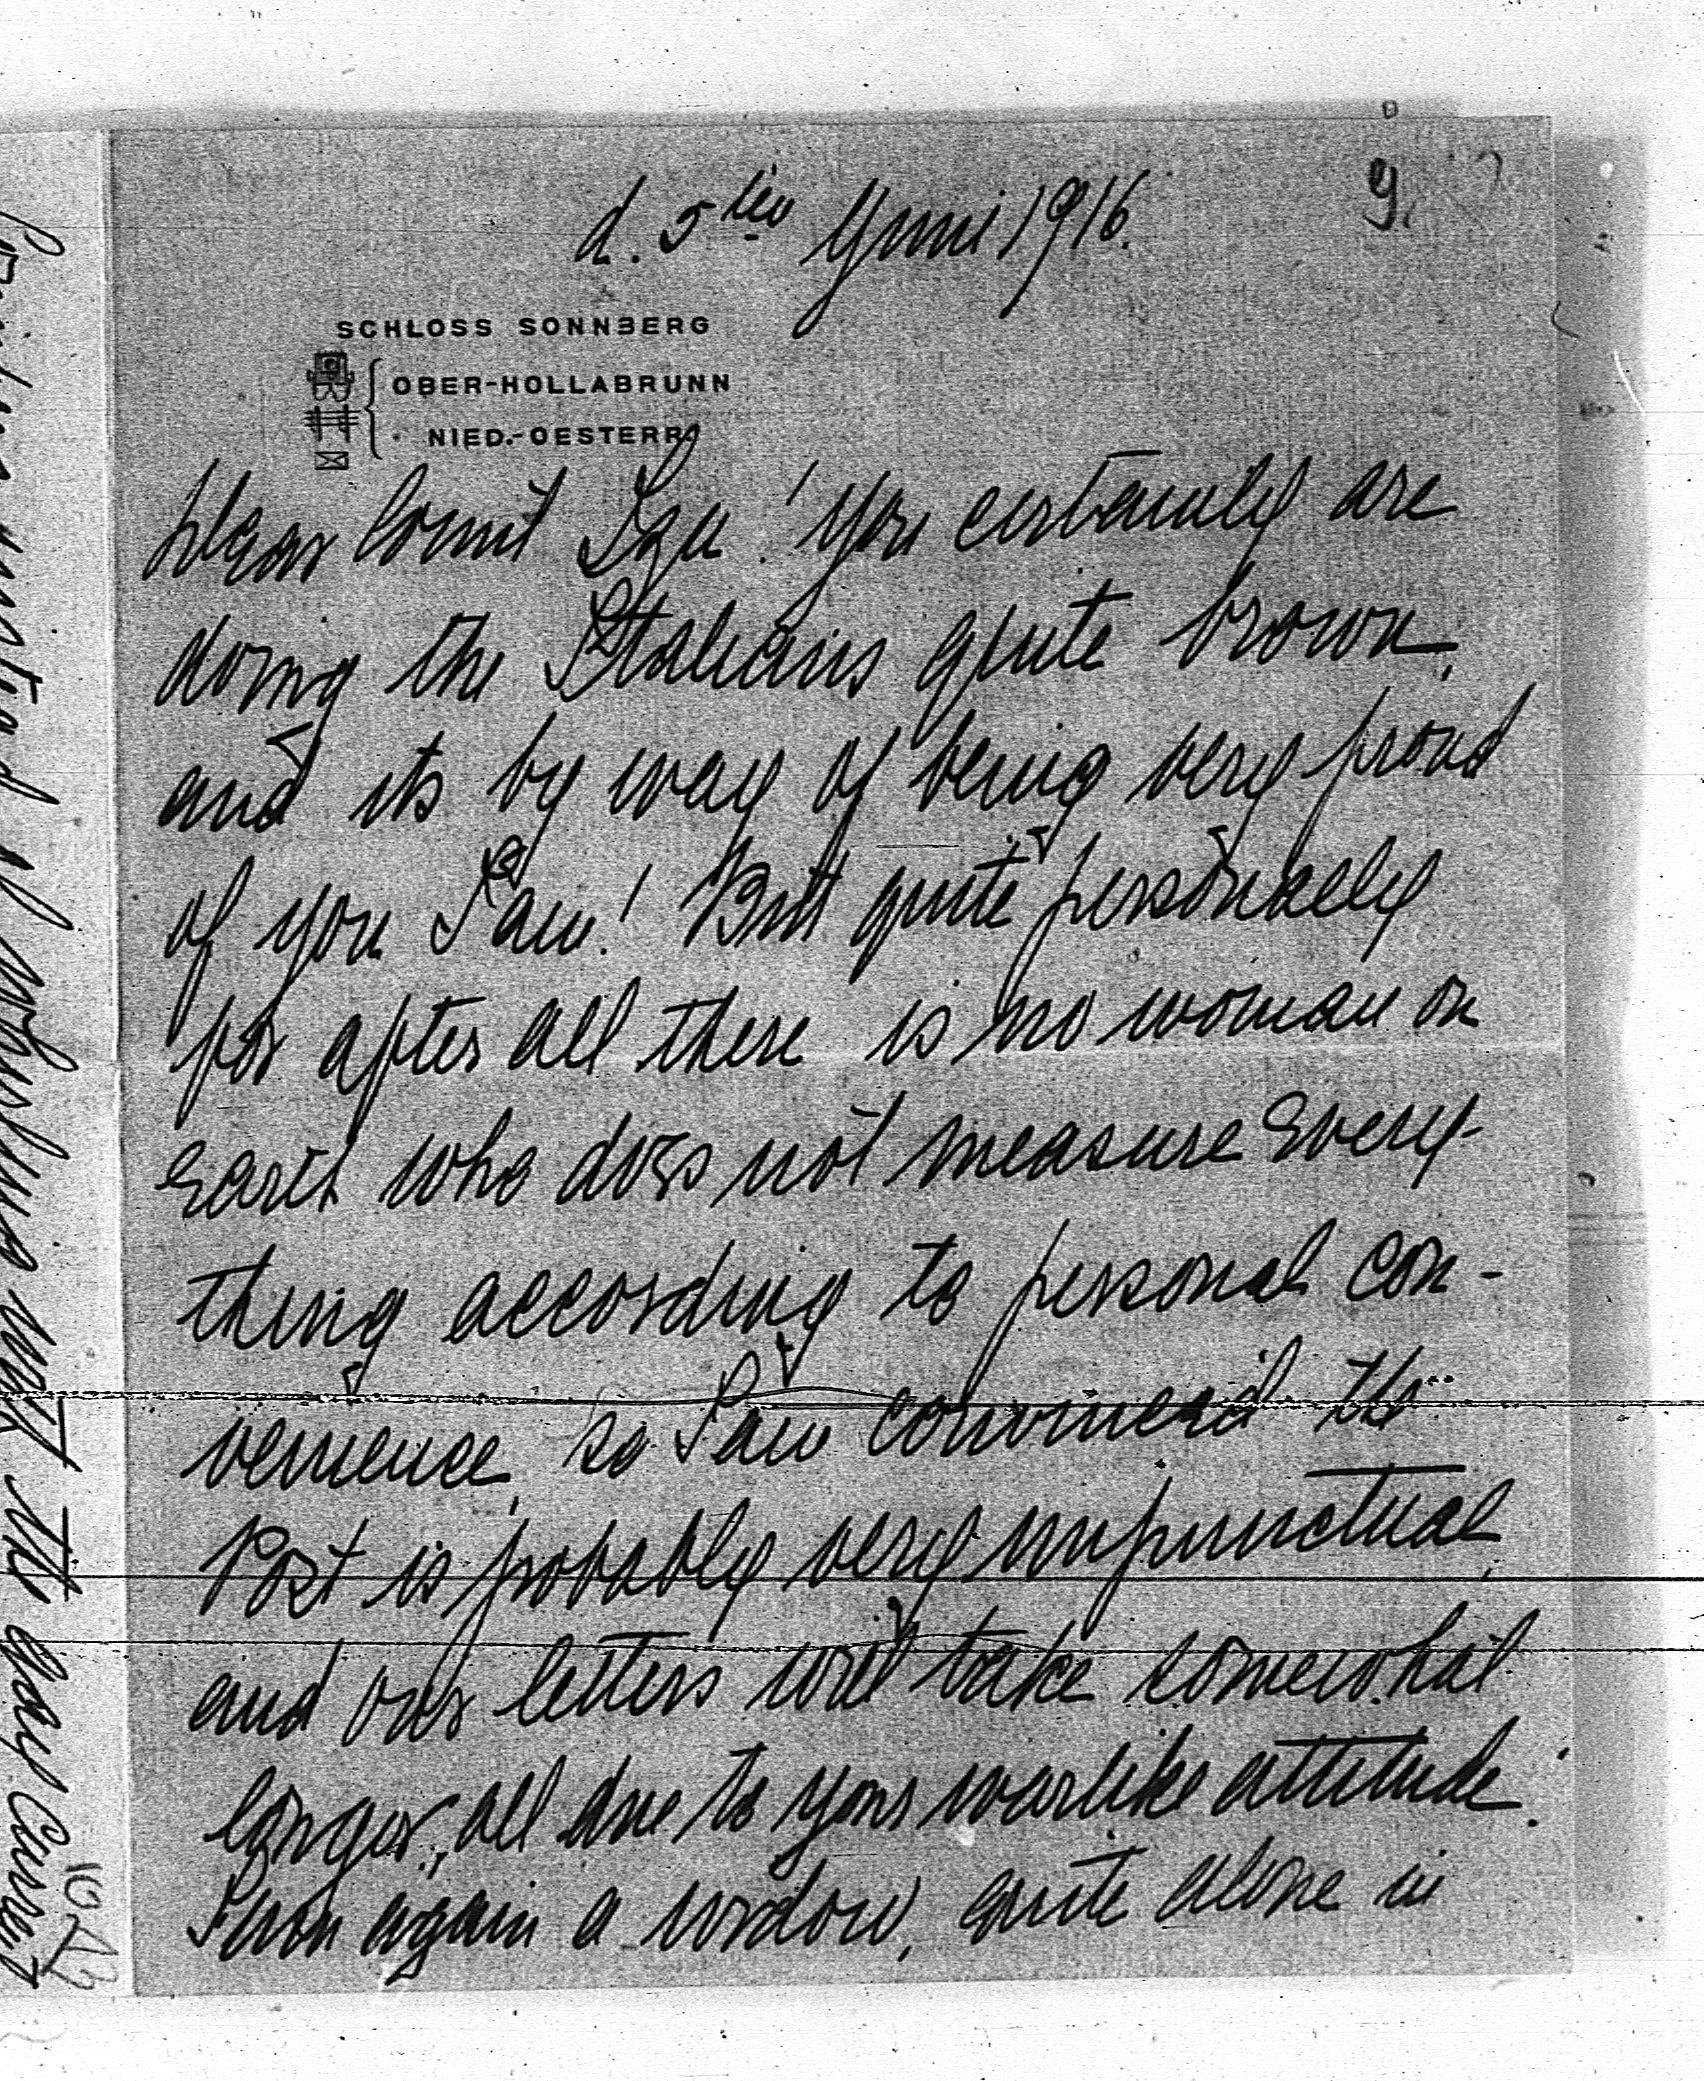 9.
d. 5ten Juni 1916.
SCHLOSS SONNBERG
OBER-HOLLABRUNN
NIED.-OESTERR.
Dear Count You certainly are
doing the Italians quite brown,
and its by way of being very proud
of you I am! But quite personally
for after all there is no woman on
earth who does not measure every-
thing according to personal con-
venience, so I am convinced the
Post is probably very unpunctual,
and our letters will take somewhat
longer, all due to your warlike attitude.
I am again a widow, quite alone in
with the